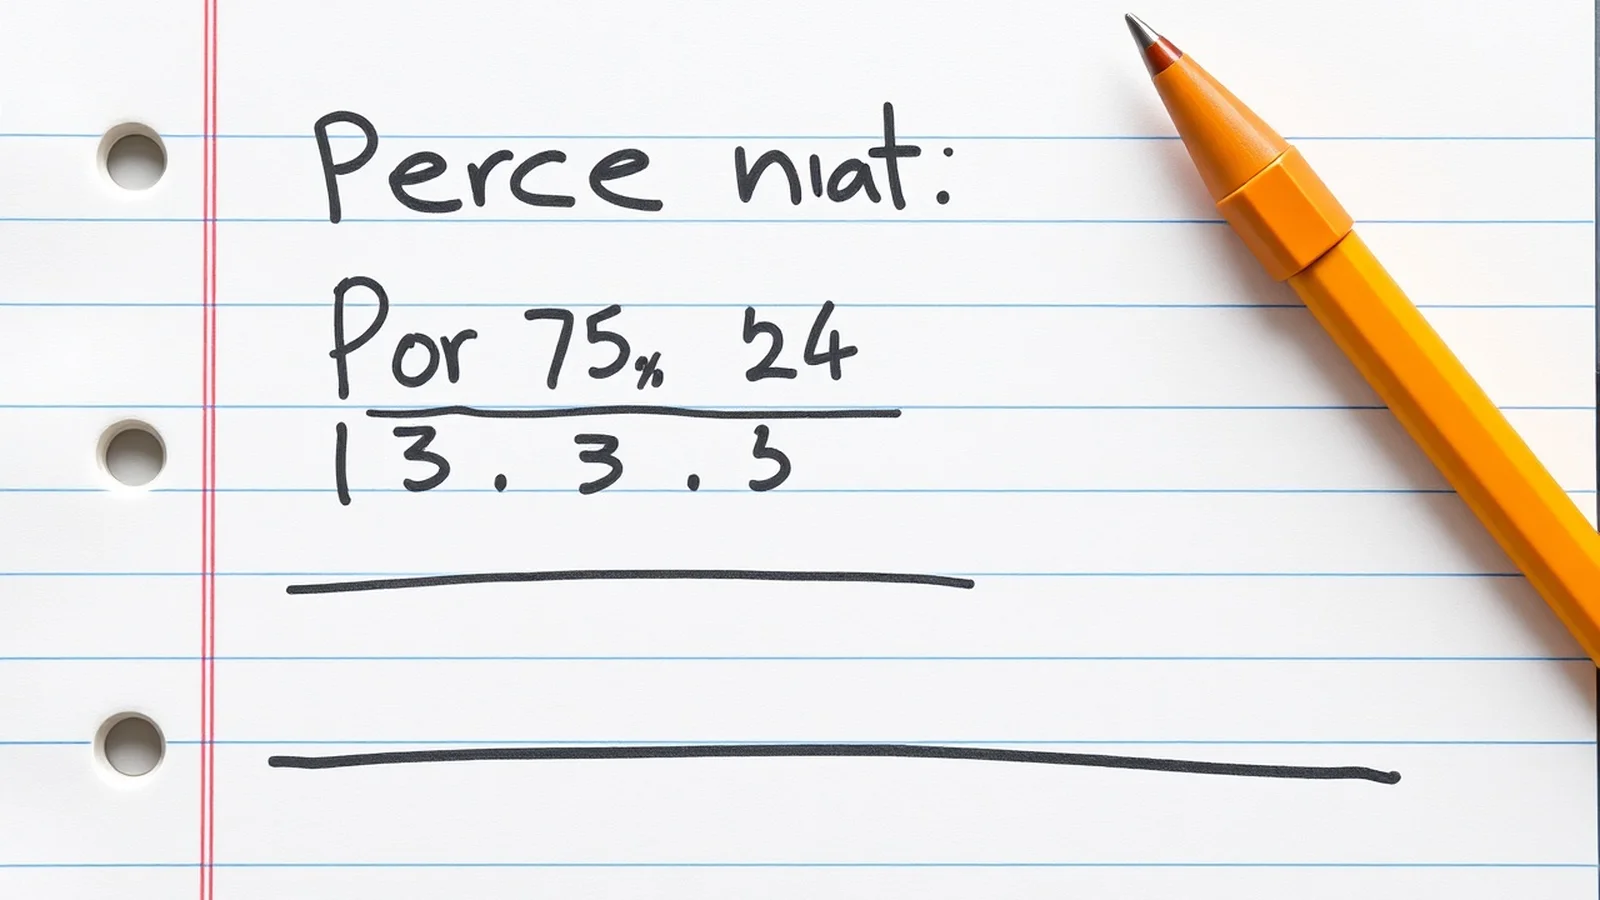 Perce nıat:
Por 75% 24
13.3.3